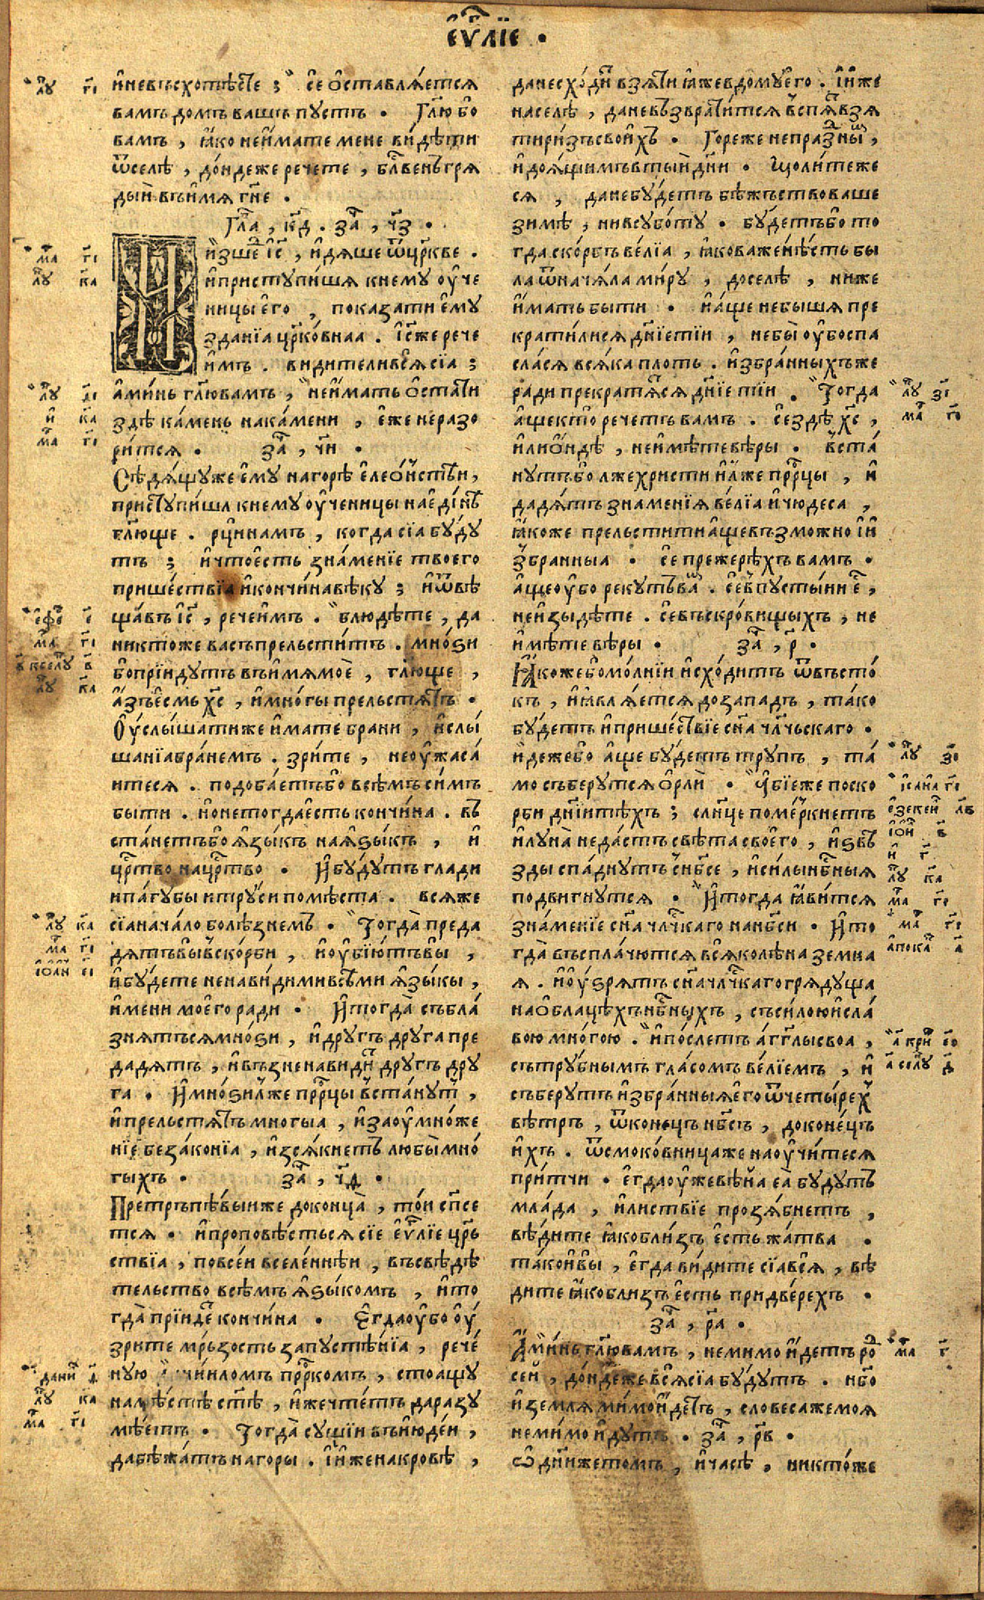 є҆ѵⷢ҇лїе .
и҆невъсхотѣⷭ҇те ; се ѻ҆ставлѧ́етсѧ
вамъ домъ вашъ пустъ . Гл҃ю бо
вамъ , ꙗ҆́ко неи҆́мате мене ви́дѣти
ѿселѣ , до́ндеже рече́те , бл҃ве́нъ грѧ
ды́и въ и҆мѧ гн҃е .
Глⷡ҇а , к҃д . заⷱ҇ , ч҃з .
И҆зшеⷣ і҆с҃ , и҆дѧ́ше ѿцр҃кве .
и҆приступи́шѧ кнему ѹ҆че
ницы є҆го̀ , показа́ти є҆мꙋ
зда́нїа цр҃ко́внаа . і҆с҃же рече
и҆́мъ . видителивсѧ̀ сїа̀ ;
а҆ми́нь гл҃ювамъ , неи҆́мать ѻ҆ста́ти
здѣ ка́мень нака́мени , є҆́же неразо
ри́тсѧ . заⷱ҇ , ч҃и .
Сѣдѧ́щꙋже є҆мꙋ нагорѣ̀ є҆леѻ́нстѣи ,
пристꙋпи́ша кнемꙋ ѹ҆ченицы наеди́нѣ
гл҃юще . рцы̀намъ , когда сїа бꙋ́дꙋ
тъ ; и҆что̀есть зна́менїе твоего̀
прише́ствїа и҆кончи́навѣку ; и҆ѿвѣ
ща́въ і҆с҃ , рече и҆мъ . блюдѣ́те , да
никтоже васъ прельсти́тъ . мно́ѕи
бопрїи́дꙋтъ въи́мѧмоѐ , гл҃юще ,
а҆́зъесмь х҃с , и҆мно́гы прельстѧ́тъ .
Оу҆слы́шатиже и҆́мате брани , и҆слы́
шанїабра́немъ . зри́те , неѹ҆жаса́
итесѧ . подоба́етъбо всѣ́мъ си́мъ
быти . нонетогда̀есть кончи́на . въ
ста́нетъбо ꙗ҆зы́къ наꙗ҆зы́къ , и҆
црⷭ҇тво нацрⷭ҇тво . И҆бу́дꙋтъ глади
и҆па́гꙋбы и҆трꙋ́си помѣста . всѧ́же
сїанача́ло болѣ́знемъ . Тогда̀ преда
дѧ́тъвы вско́рби , и҆ѹ҆бїю́тъвы ,
и҆бꙋдете ненави́димивсѣ́ми ꙗ҆зы́кы ,
и҆́мени моего̀ ради . И҆тогда̀ събла́
знѧтсѧмно́ѕи , и҆дрꙋ́гъ дрꙋга пре
дадѧ́тъ , и҆възненави́дѧтъ дрꙋ́гъ дрꙋ
га . И҆мно́ѕи лже прⷪ҇рцы въста́нꙋтъ ,
и҆прельстѧ́тъ многыа , и҆заѹ҆мно́же
нїе безако́нїа , и҆зсѧ́кнетъ любы̀ мно́
гыхъ . заⷱ҇ , ч҃ѳ .
Претръпѣ́выиже доконца̀ , то́и спⷭ҇се
тсѧ . и҆проповѣ́стьсѧ сїе є҆ѵⷢ҇лїе црⷭ҇
ствїа , повсе́и вселе́ннѣи , въсвѣдѣ́
тельство всѣ́мъ ꙗ҆зы́комъ , и҆то
гда̀ прїи́детъ кончи́на . Є҆гдаѹ҆бо ѹ҆́
зрите мръзость запꙋстѣ́нїа , рече́
ную данїи́ломъ прⷪ҇ркомъ , стоащꙋ
намѣ́стѣ ст҃ѣ , и҆жечте́тъ даразꙋ
мѣетъ . Тогда̀ сꙋ́щїи въи҆юде́и ,
дабѣжа́тъ нагоры . І҆и҆же накровѣ̀ ,
данесхо́дитъ взѧ́ти ꙗ҆́жевдомꙋ є҆го̀ . І҆и҆́же
населѣ̀ , даневъзврати́тсѧ въспѧ́ть взѧ
ти ри́зъ свои́хъ . Го́реже непразⷣнымъ ,
и҆доѧ́щимъ вты́ѧ дни . Моли́теже
сѧ , данебу́детъ бѣ́жьство ваше
зимѣ̀ , нивсꙋбо́тꙋ . бꙋдетъбо то
гда ско́рбъ ве́лїа , ꙗ҆коваже нѣ́сть бы
ла ѿнача́ла ми́рꙋ , доселѣ̀ , ниже
и҆́мать быти . и҆а҆́ще небышѧ пре
крати́лисѧ дн҃їе тїи , небы̀ ѹ҆́бо спа
сла́сѧ всѧ́ка плоть . и҆збра́нныхъже
ради прекратѧ́тсѧ дн҃їе тїи . Тогда
а҆щекто̀ рече́тъ вамъ . се здѣ̀ х҃с ,
и҆ли о҆́ндѣ , неи҆мѣ́те вѣры . въста́
нꙋтъбо лжехристи и҆ лже прⷪ҇рцы , и҆
дадѧ́тъ зна́менїѧ ве́лїа и҆чюдеса ,
ꙗ҆коже прельсти́ти а҆ще възмо́жно і҆и҆
збра́нныа . се преже рѣ́хъ вамъ .
а҆щеѹ҆бо рекꙋ́тъ вамъ . се въпꙋсты́ни єⷭ҇ ,
неи҆зыдѣте . се въскро́вищыхъ , не
и҆мѣ́те вѣры . заⷱ҇ , р҃ .
Ꙗ҆́коже бо мо́лнїи и҆схо́дитъ ѿвъсто́
къ , и҆ꙗ҆влѧ́етсѧ дозападъ , та́ко
бꙋ́детъ и҆прише́ствїе сн҃а чл҃чьскаго .
и҆дежебо а҆ще бꙋ́детъ трꙋпъ , та́
мо съберꙋтсѧ ѻ҆рлѝ . А҆бїеже поско
рби дн҃їи тѣ́хъ ; сл҃нце поме́ркнетъ
и҆лꙋна̀ неда́стъ свѣ́та своего̀ , и҆ѕвѣ
зды спадꙋтъ снб҃се , и҆си́лы нбⷭ҇ныѧ
подви́гнꙋтсѧ . И҆тогда ꙗ҆ви́тсѧ
зна́менїе сн҃а чл҃чⷭ҇каго нанб҃си . И҆то
гда̀ въсплачꙋтсѧ всѧ̀колѣ́на земна
ѧ . и҆ѹ҆зрѧтъ сн҃а чл҃чⷭ҇каго грѧдꙋща
наѻ҆блацѣ́хъ нбⷭ҇ныхъ , съси́лою и҆сла́
вою мно́гою . и҆по́слетъ а҆́гг҃лы своа ,
сътрꙋ́бнымъ гла́сомъ ве́лїемъ , и҆
съберꙋтъ и҆збра́нныѧ є҆го̀ ѿчеты́рех
вѣ́тръ , ѿконе́цъ нб҃съ , доконе́цъ
и҆хъ . ѿсмоко́вницаже наѹ҆чи́тесѧ
при́тчи . є҆гда ѹ҆же вѣ́иа еа̀ бꙋдꙋтъ
мла́да , и҆листвїе прозѧ́бнетъ ,
вѣдите ꙗ҆́ко бли́зъ є҆сть жа́тва .
та́кои҆вы , є҆гда ви́дите сїа̀всѧ , вѣ
дите ꙗ҆́ко близъ є҆́сть придве́рехъ .
заⷱ҇ , р҃а .
А҆ми́нь гл҃ювамъ , немимо и҆де́тъ роⷣ
се́и , до́ндеже всѧ̀ сїа бꙋ́дꙋтъ . нб҃о
и҆землѧ мимои҆де́тъ , словеса́же моѧ
немимо и҆дꙋтъ . заⷱ҇ , р҃в .
Ѡ дн҃иже то́мъ , и҆часѣ̀ , никто́же